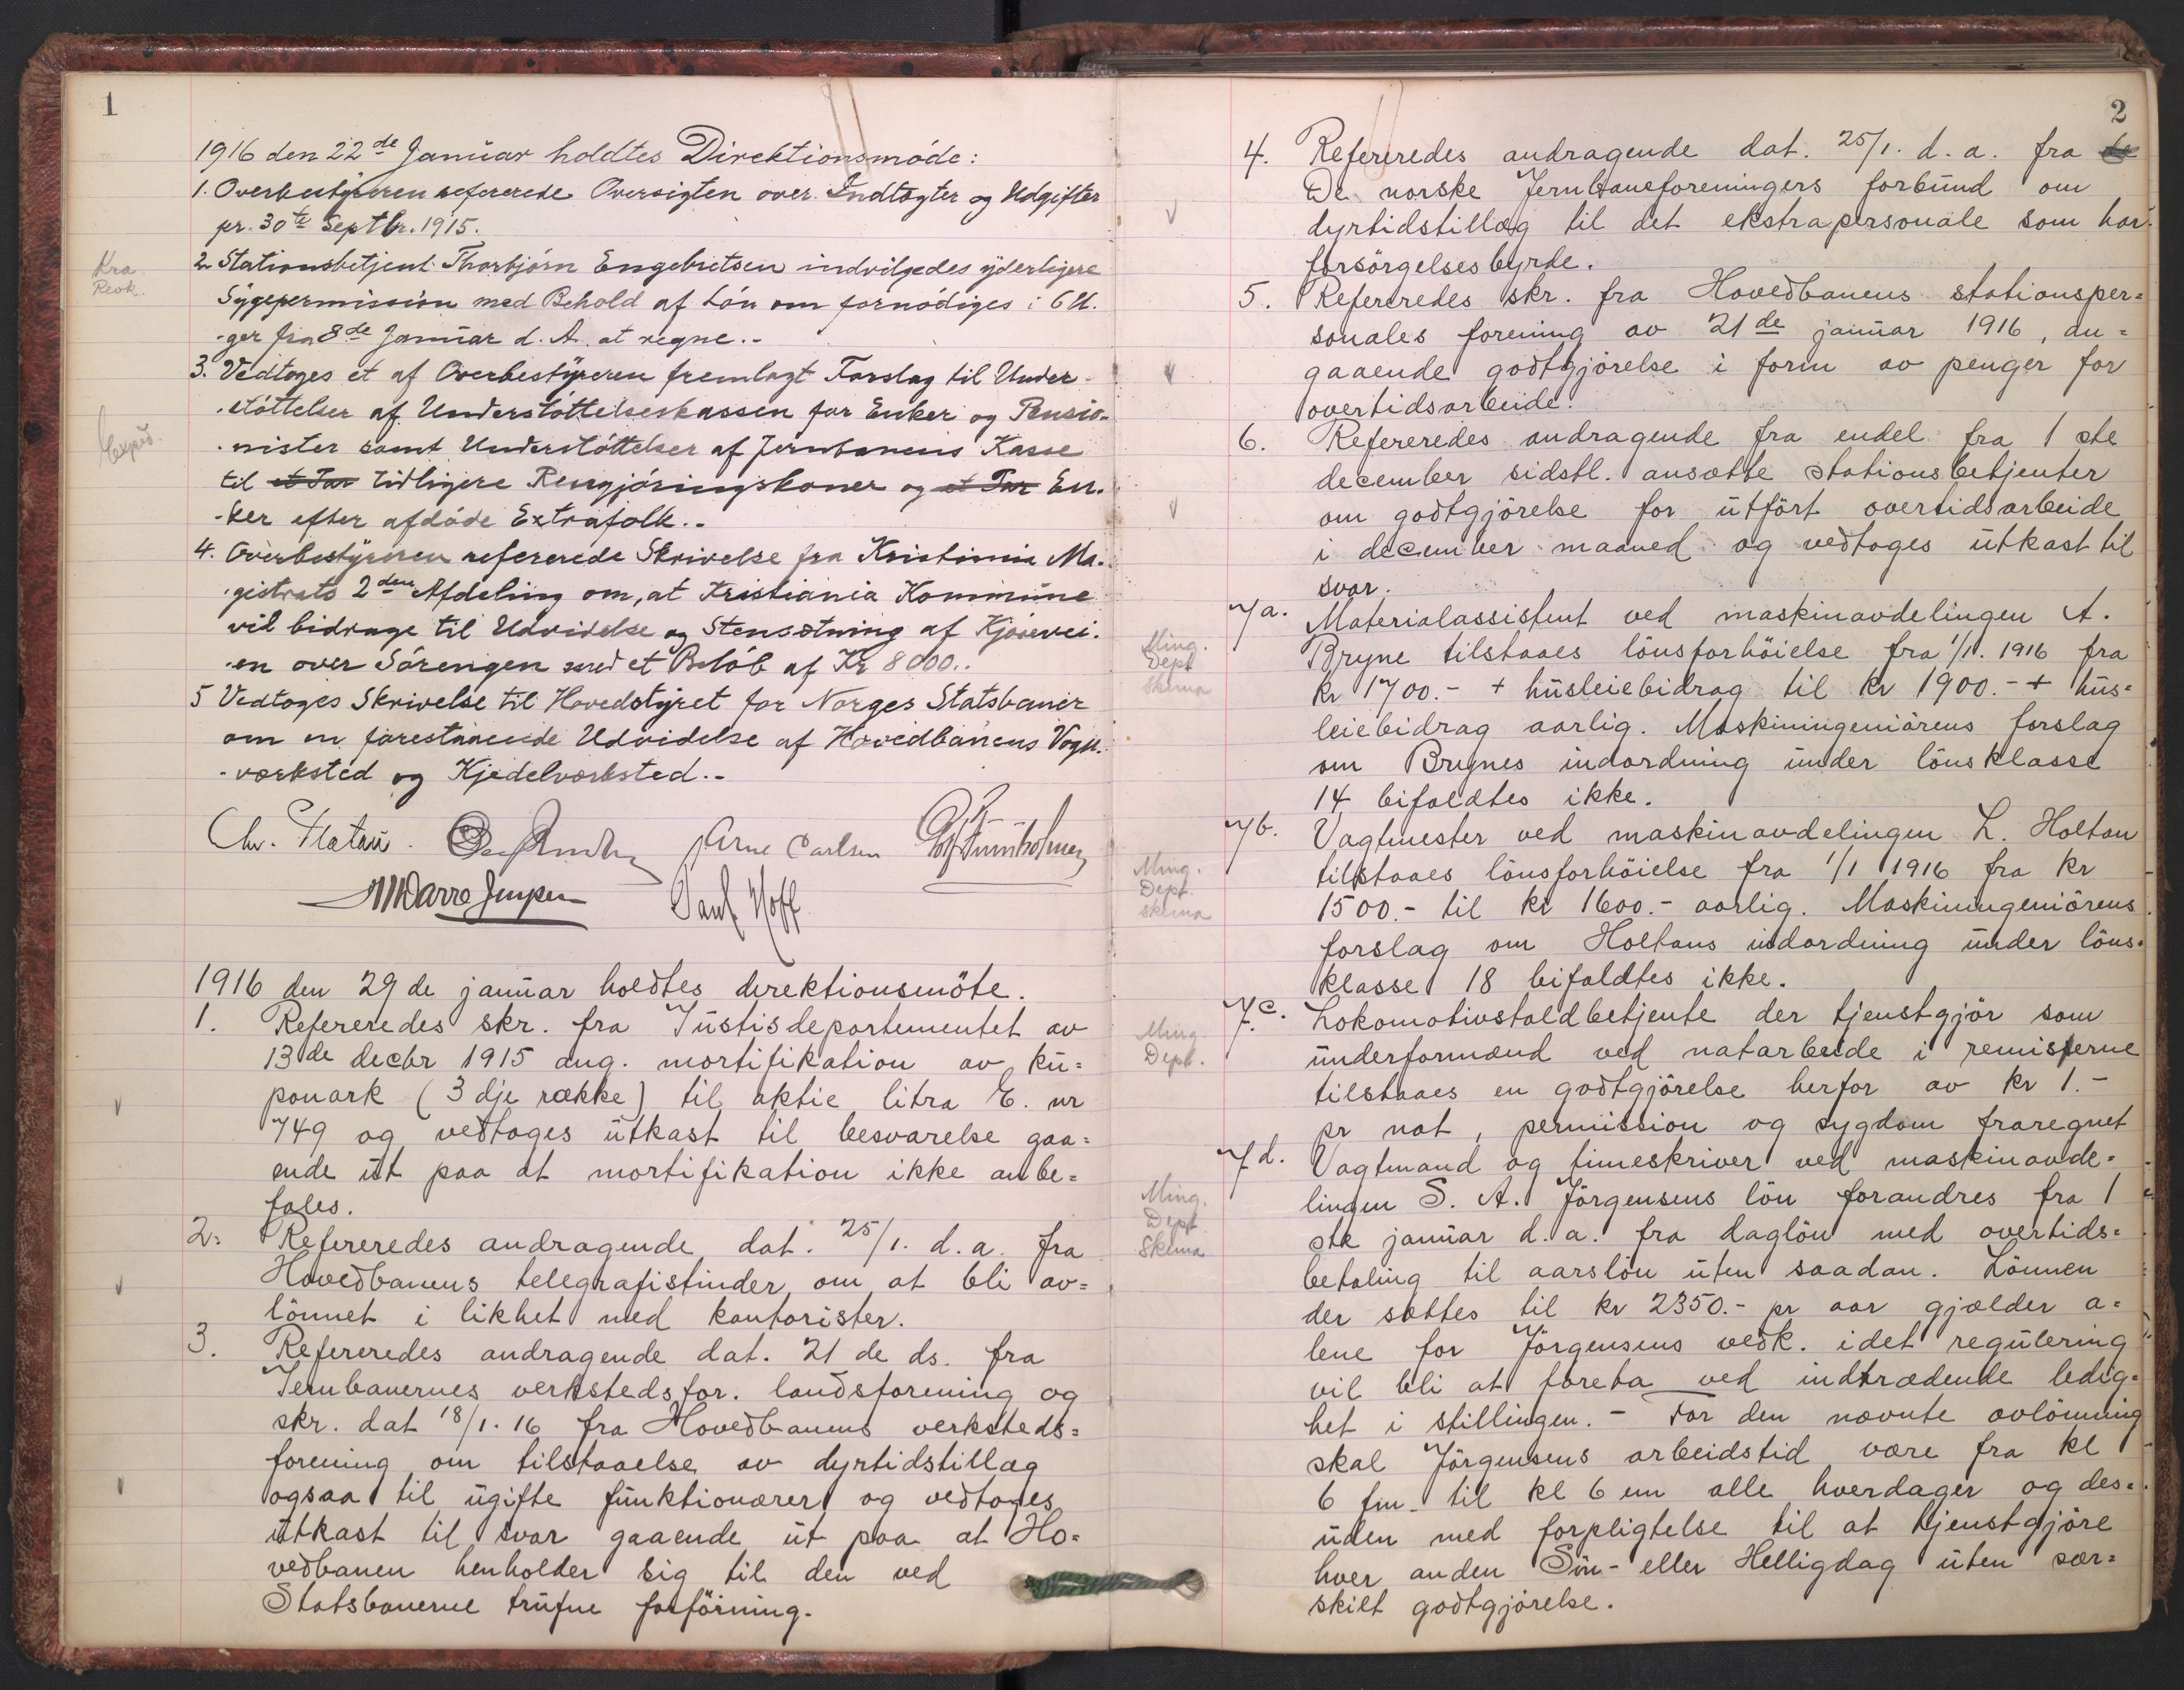 1
1916 den 22de Januar holdtes Direktionsmöde:
1. Overbestyreren refererede Oversigten over Indtægter og Udgifter
pr. 30te Septbr. 1915.
Kra.
Revk.
2 Stationsbetjent Thorbjörn Engebretsen indvilgedes yderligere
Sygepermission med Behold af Lön om fornödiges i 6 U.
-ger fra 8de Januar d. A. at regne.-
Exped.
3. Vedtoges et af Overbestyreren fremlagt Forslag til Under-
-stöttelser af Understöttelseskassen for Enker og Pensio-
-nister samt Understöttelser af Jernbanens Kasse
til et Par tidligere Rengjöringskoner og et Par En-
-ker efter afdöde Extrafolk.-
4. Overbestyreren refererede Skrivelse fra Kristiania Ma-
-gistrats 2den Afdeling om, at Kristiania Kommune
vil bidrage til Udvidelse og Stensætning af Kjösevei-
-en over Sörengen med et Belöb af Kr 8000.-
5 Vedtoges Skrivelse til Hovedstyret for Norges Statsbaner
om en forestaaende Udvidelse af Hovedbanens Vogn-
-værksted og Kjedelværksted.-
Chr. Platou. Arne Carlsen
Paul Hoff
1916 den 29de januar holdtes direktionsmöte.
1. Refereredes skr. fra Justisdepartementet av
13de decbr 1915 ang. mortifikation av ku=
ponark (3dje række) til aktie litra E. nr
749 og vedtoges utkast til besvarelse gaa=
ende ut paa at mortifikation ikke anbe=
fales.
2. Refereredes andragende dat. 25/1. d.a. fra
Hovedbanens telegrafistinder om at bli av=
lönnet i likhet med kontorister.
3. Refereredes andragende dat. 21de ds. fra
Jernbanernes verkstedsfor. landsforening og
skr. dat 18/1. 16 fra Hovedbanens verksteds=
forening om tilstaaelse av dyrtidstillæg
ogsaa til ugifte funktionærer og vedtoges
utkast til svar gaaende ut paa at Ho=
vedbanen henholder sig til den ved
Statsbanerne trufne forföining.
2
4. Refereredes andragende dat. 25/1. d.a. fra de
De norske Jernbaneforeningers forbund om
dyrtidstillæg til det ekstrapersonale som har
forsörgelsesbyrde.
5. Refereredes skr. fra Hovedbanens stationsper=
sonales forening av 21de januar 1916, an=
gaaende godtgjörelse i form av penger for
overtidsarbeide.
6. Refereredes andragende fra endel fra 1ste
december sidstl. ansatte stationsbetjenter
om godtgjörelse for utfört overtidsarbeide
i december maaned og vedtoges utkast til
svar.
Ming.
Dept
Skema
7a. Materialassistent ved maskinavdelingen A.
Bryne tilstaaes lönsforhöielse fra 1/1. 1916 fra
kr 1700.- + husleiebidrag til kr 1900.- + hus=
leiebidrag aarlig. Maskiningeniörens forslag
om Brynes indordning under lönsklasse
14 bifaldtes ikke.
Ming.
Dept.
skema
7b. Vagtmester ved maskinavdelingen L. Holtan
tilstaaes lönsforhöielse fra 1/1 1916 fra kr
1500.- til kr 1600.- aarlig. Maskiningeniörens
forslag om Holtans indordning under löns-
klasse 18 bifaldtes ikke.
Ming.
Dept.
7c. Lokomotivstaldbetjente der tjenstgjör som
underformænd ved natarbeide i remisserne
tilstaaes en godtgjörelse herfor av kr 1.-
pr nat, permission og sygdom fraregnet
Ming.
Dept.
Skema
7d. Vagtmand og timeskriver ved maskinavde-
lingen S. A. Jörgensens lön forandres fra 1
ste januar d.a. fra daglön med overtids=
betaling til aarslön uten saadan. Lönnen
der sættes til kr 2350.- pr aar gjælder a=
lene for Jörgensens vedk. idet regulering
vil bli at foreta ved indtrædende ledig=
het i stillingen. - For den nævnte avlönning
skal Jörgensens arbeidstid være fra kl
6 fm. til kl 6 em alle hverdager og des-
uden med forpligtelse til at tjenstgjöre
hver anden Søn- eller Helligdag uten sær=
skilt godtgjörelse.